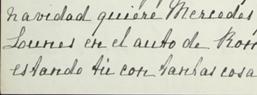 navidad quiere Mercedes
Lounes en el auto de Ron
estando tú con tantas cosa